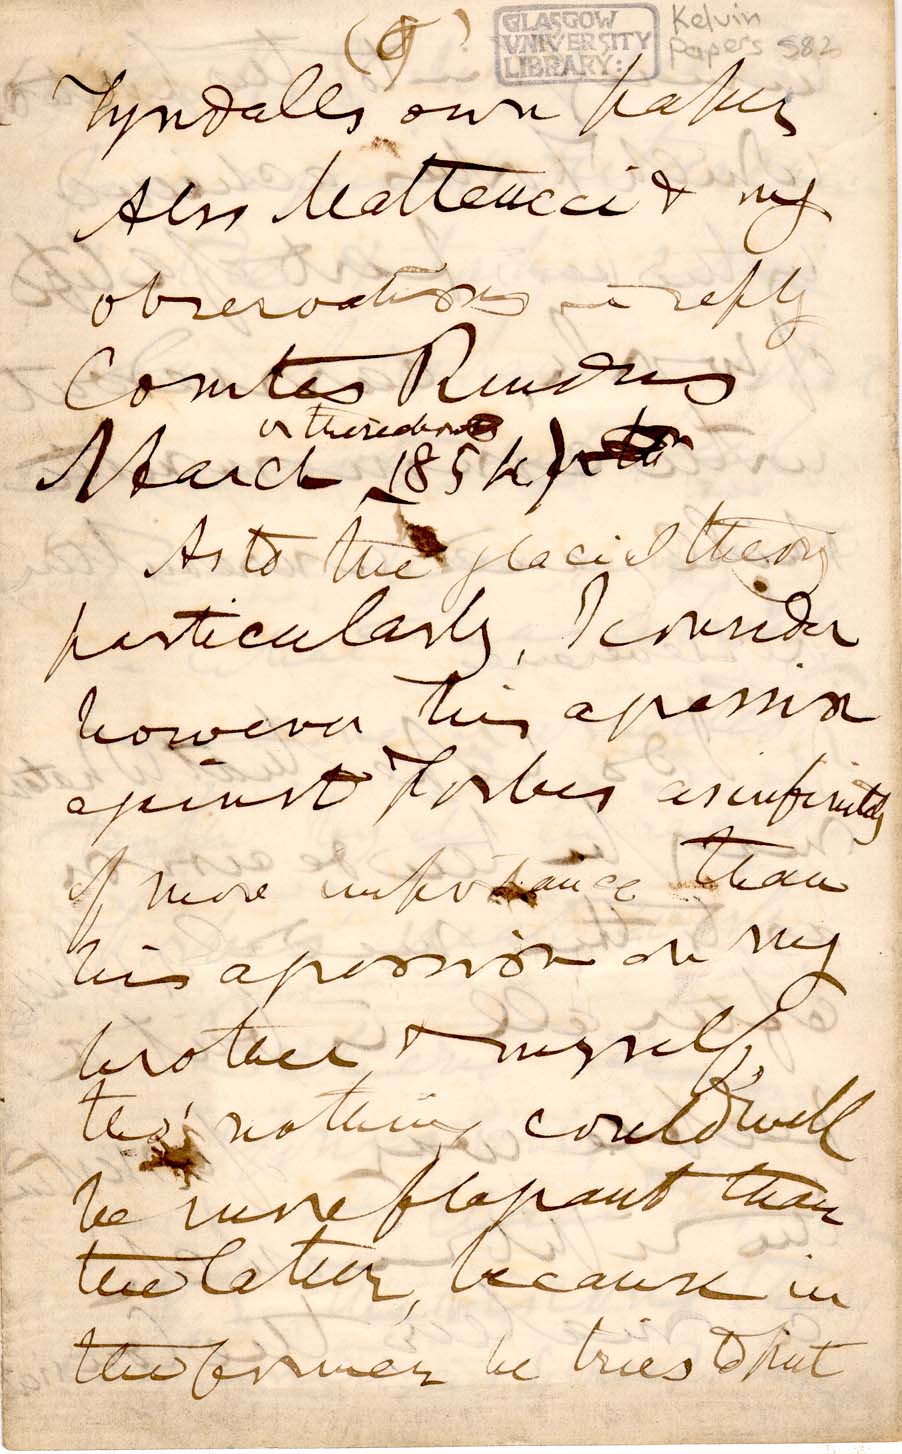 GLASGOW
UNIVERSITY
LIBRARY:
Kelvin
Papers 582
Tyndalls own paper
Also Matteucci & my
observations in reply
Comtes Rendus
or thereabouts
March 1854)
As to the glacial theory
particularly, I consider
however his agression
against Forbes as infinitely
of more importance than
his agression on my
brother & myself,
tho' nothing could well
be more flagrant than
the latter, because in
the former he tries to put